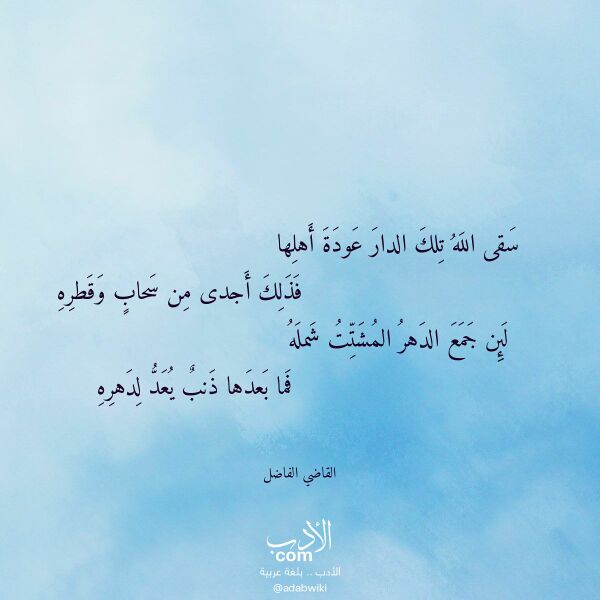 سَقى اللَهُ تِلكَ الدارَ عَودَةَ أَهلِها
فَذَلِكَ أَجدى مِن سَحابٍ وَقَطرِهِ
لَئِن جَمَعَ الدَهرُ المُشَتِّتُ شَملَهُ
فَما بَعدَها ذَنبٌ يُعَدُّ لِدَهرِهِ
القاضي الفاضل
الأدب
com
الأدب .. بلغة عربية
@adabwiki